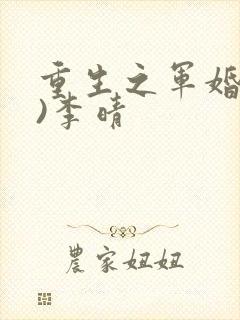 重生之军婚
)李晴
農家妞妞